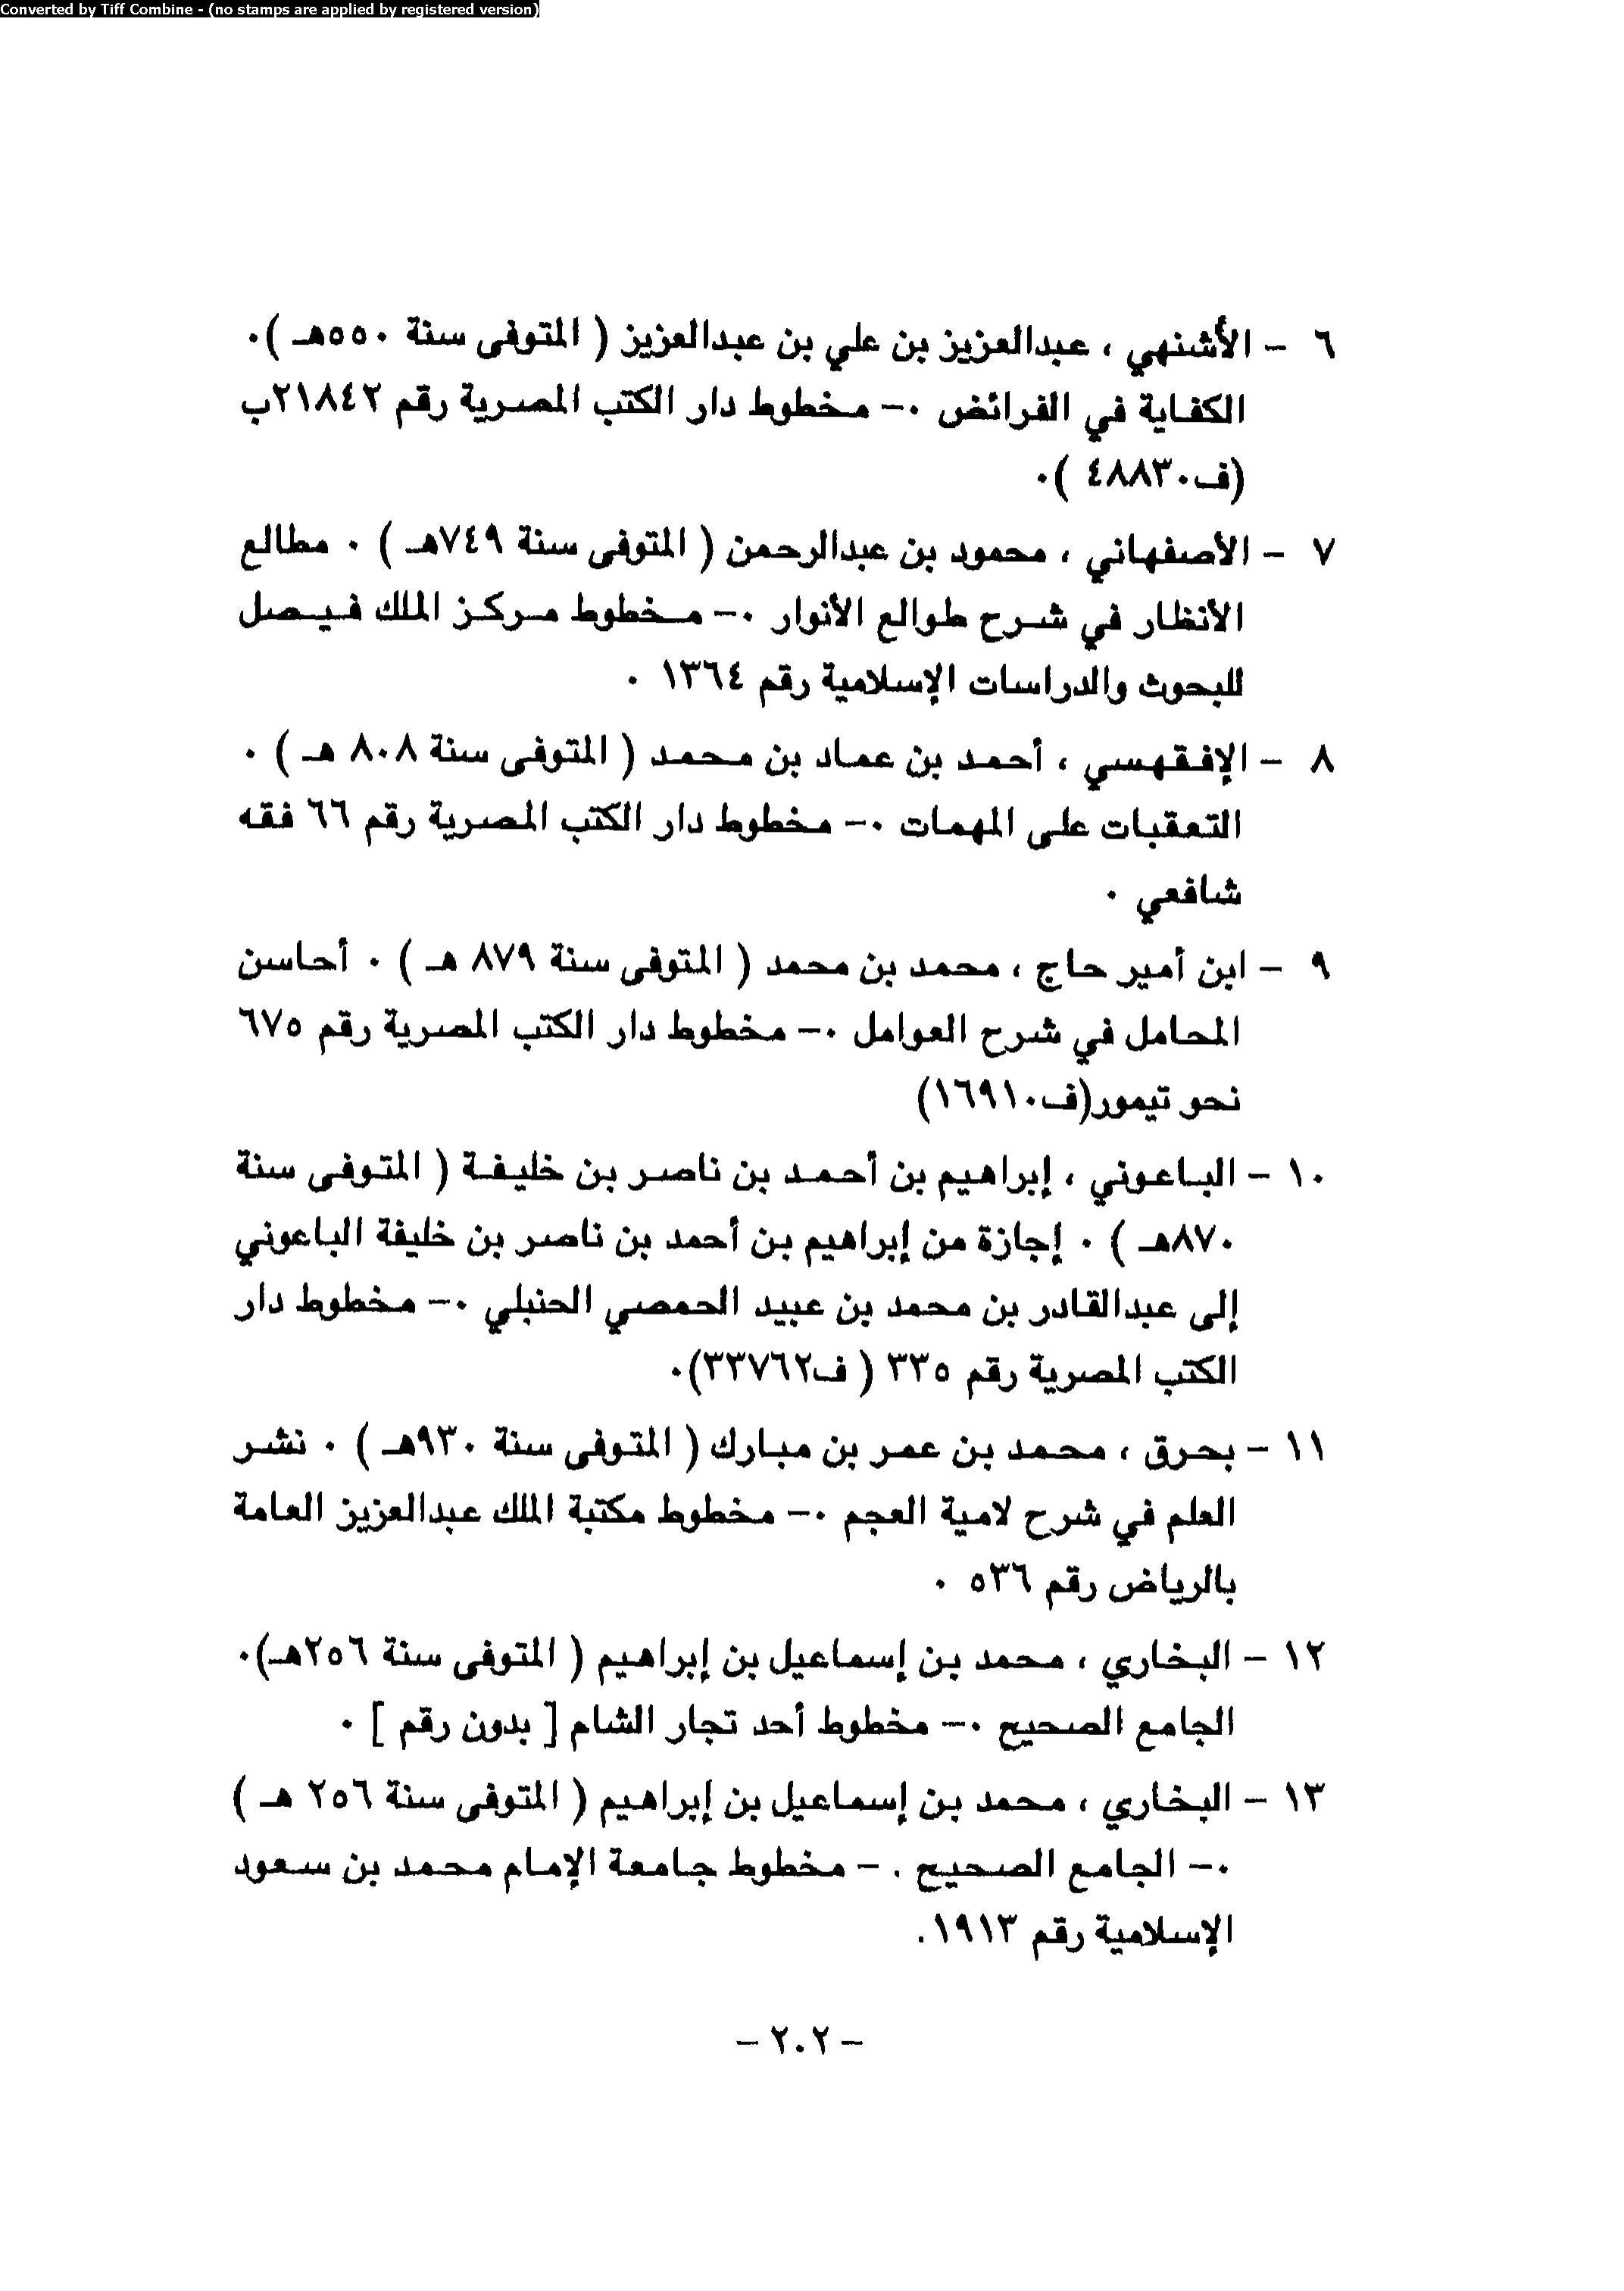 Converted by Tiff Combine - (no stamps are applied by registered version)
٦ - الأشنهي ، عبدالعزيز بن علي بن عبدالعزيز ( المتوفى سنة ٥٥٠هـ )٠
الكفاية في الفرائض ٠- مخطوط دار الكتب المصرية رقم ٢١٨٤٢ب
(ف٤٨٨٣٠ )٠
٧ - الأصفهاني ، محمود بن عبدالرحمن ( المتوفى سنة ٧٤٩هـ ) ٠ مطالع
الأنظار في شرح طوالع الأنوار ٠- مخطوط مركز الملك فيصل
للبحوث والدراسات الإسلامية رقم ١٣٦٤ ٠
٨ - الإفقهسي ، أحمد بن عماد بن محمد ( المتوفى سنة ٨٠٨ هـ ) ٠
التعقبات على المهمات ٠- مخطوط دار الكتب المصرية رقم ٦٦ فقه
شافعي ٠
٩ - ابن أمير حاج ، محمد بن محمد ( المتوفى سنة ٨٧٩ هـ ) ٠ أحاسن
المحامل في شرح العوامل ٠- مخطوط دار الكتب المصرية رقم ٦٧٥
نحو تيمور(ف١٦٩١٠)
١٠ - الباعوني ، إبراهيم بن أحمد بن ناصر بن خليفة ( المتوفى سنة
٨٧٠هـ ) ٠ إجازة من إبراهيم بن أحمد بن ناصر بن خليفة الباعوني
إلى عبدالقادر بن محمد بن عبيد الحمصي الحنبلي ٠- مخطوط دار
الكتب المصرية رقم ٣٣٥ ( ف٣٣٧٦٢)٠
١١ - بحرق ، محمد بن عمر بن مبارك ( المتوفى سنة ٩٣٠هـ ) ٠ نشر
العلم في شرح لامية العجم ٠- مخطوط مكتبة الملك عبدالعزيز العامة
بالرياض رقم ٥٣٦ ٠
١٢ - البخاري ، محمد بن إسماعيل بن إبراهيم ( المتوفى سنة ٢٥٦هـ)٠
الجامع الصحيح ٠- مخطوط أحد تجار الشام [ بدون رقم ] ٠
١٣ - البخاري ، محمد بن إسماعيل بن إبراهيم ( المتوفى سنة ٢٥٦ هـ )
٠- الجامع الصحيح . - مخطوط جامعة الإمام محمد بن سعود
الإسلامية رقم ١٩١٣.
- ٢٠٢ -